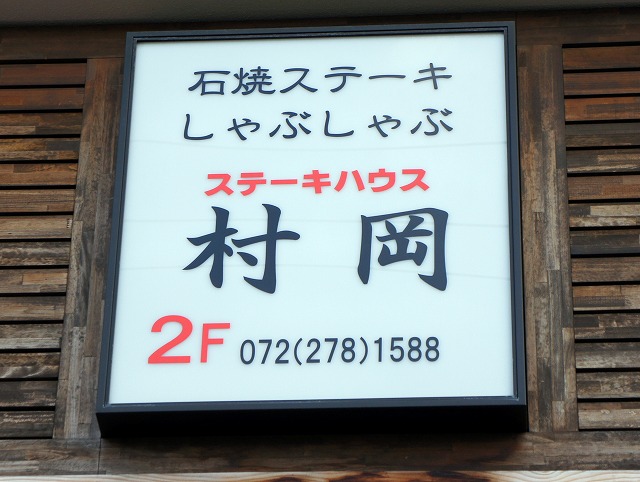 石焼ステーキ
しゃぶしゃぶ
ステーキハウス
村岡
2F 072(278)1588